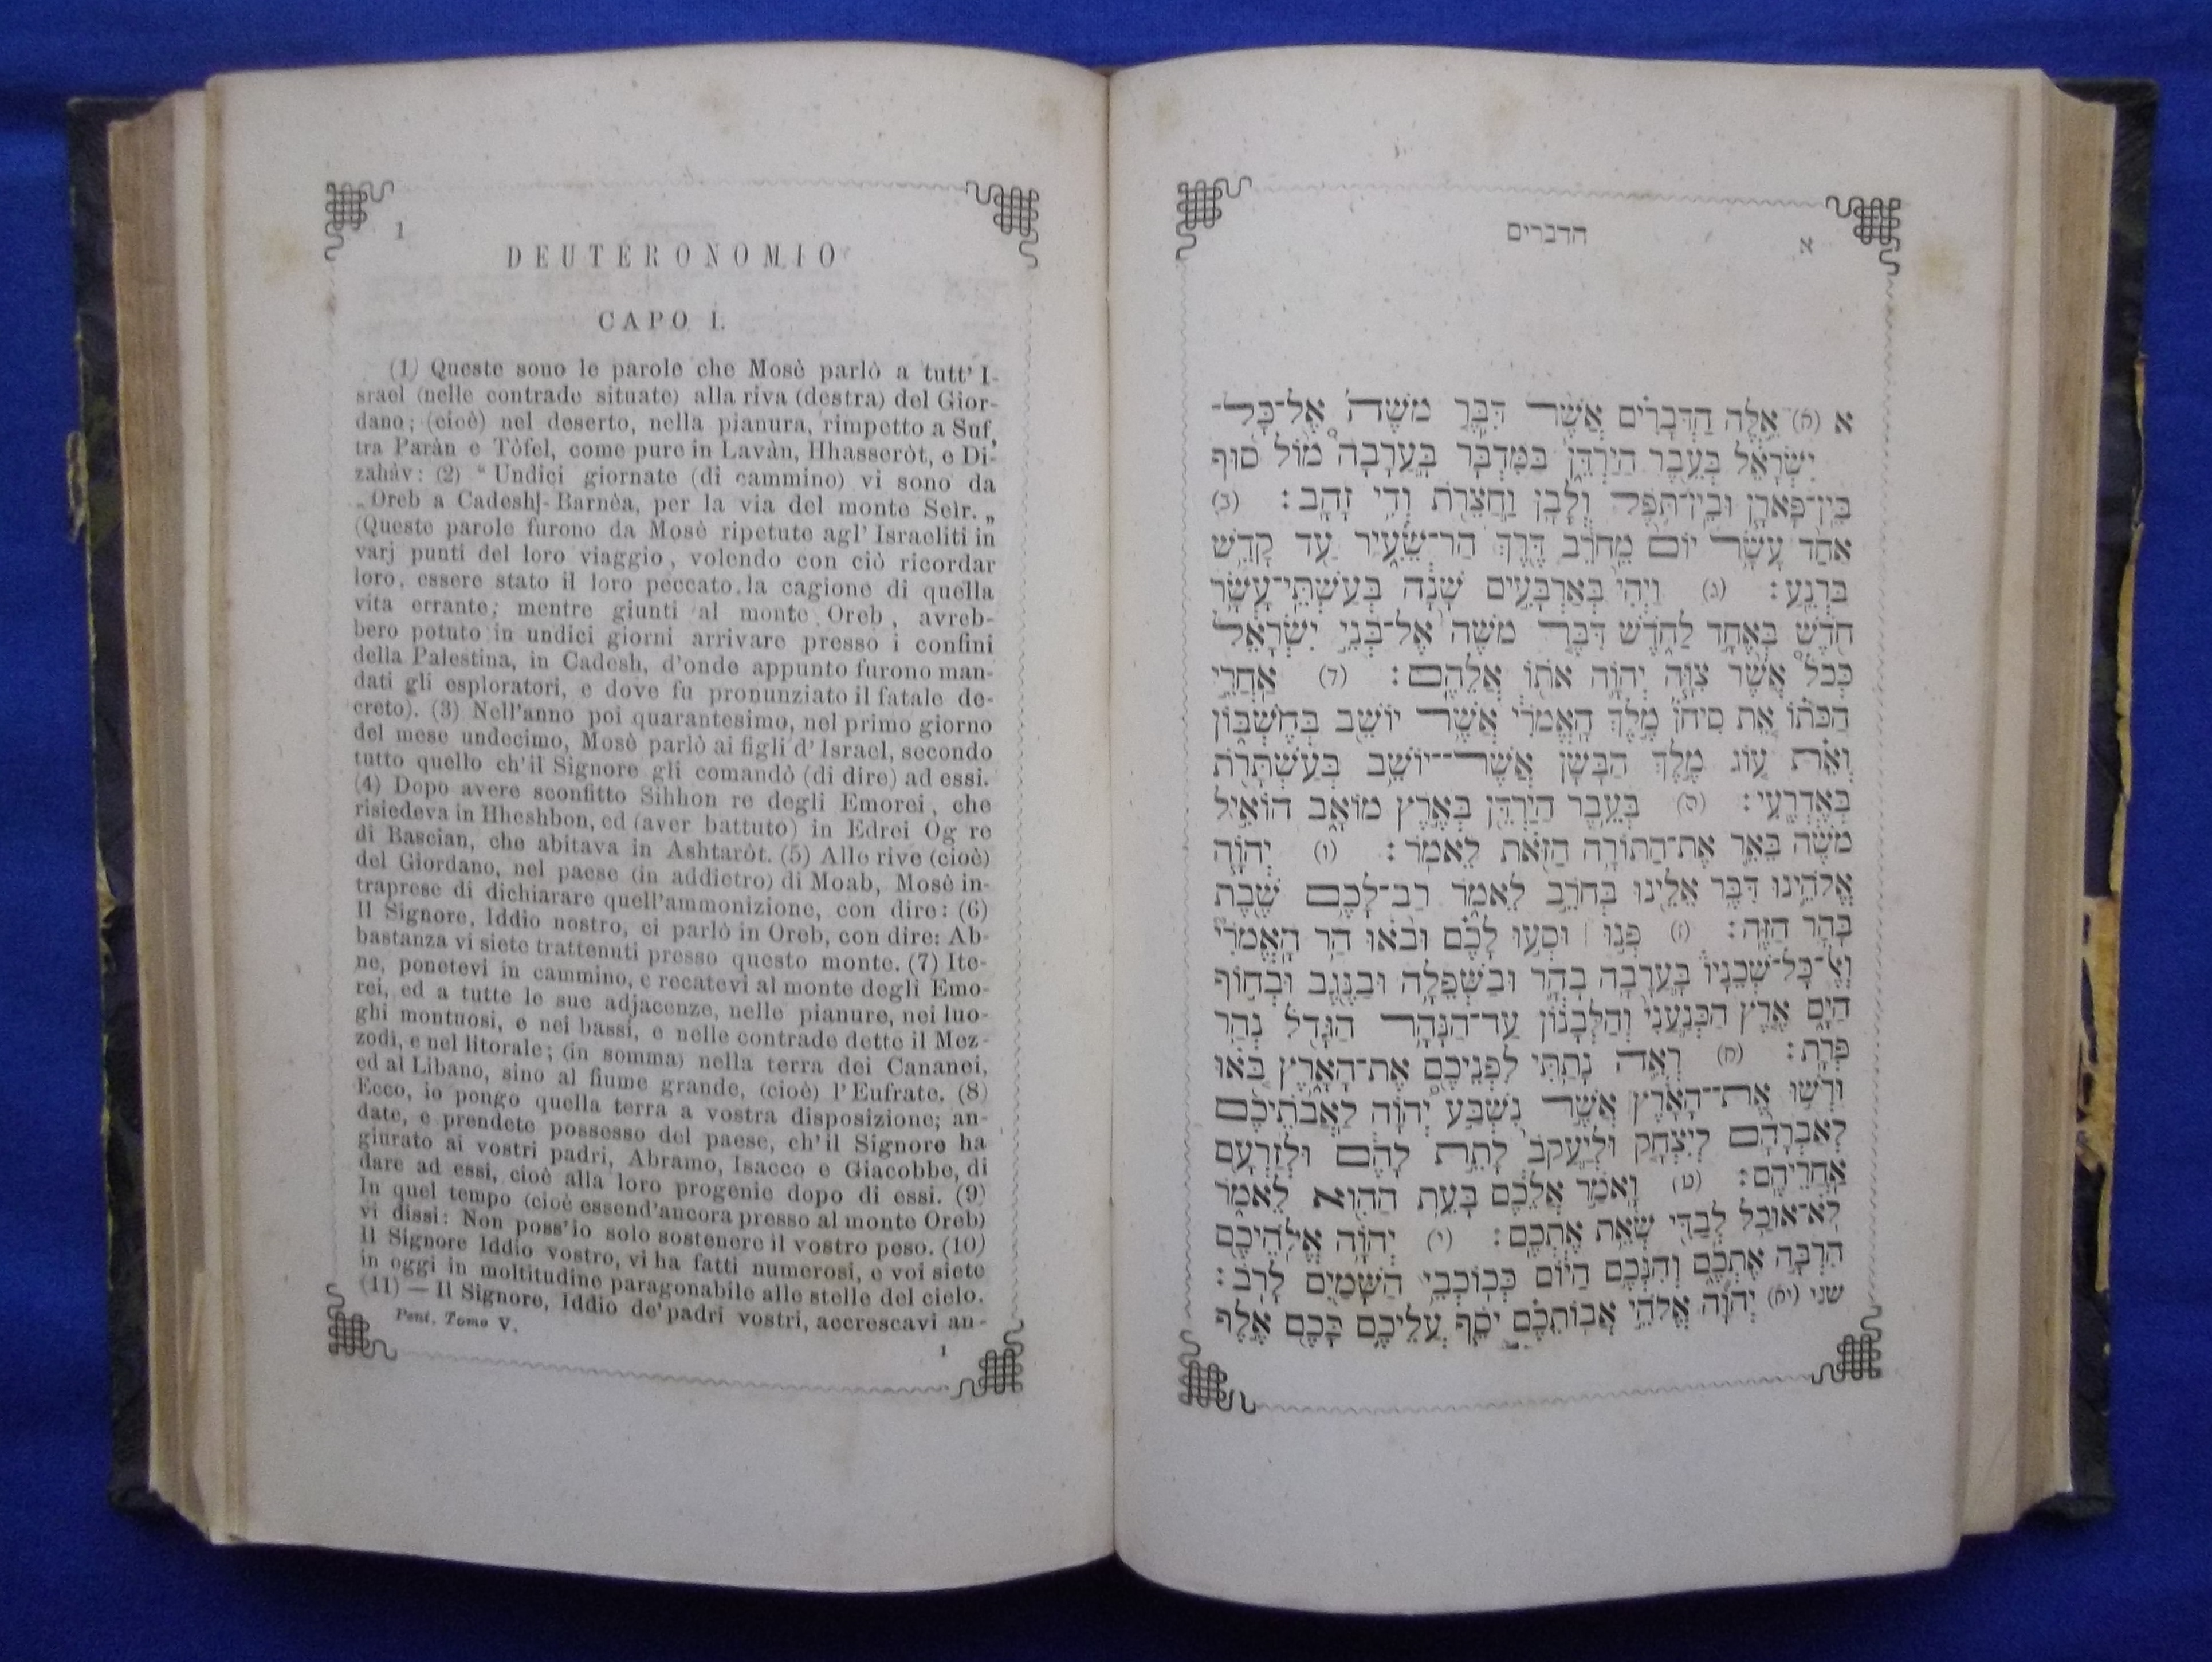 1
DEUTERONOMIO
CAPO I.
(1) Queste sono le parole che Mosè parlò a tutt' I-
srael (nelle contrade situate) alla riva (destra) del Gior-
dano; (cioè) nel deserto, nella pianura, rimpetto a Suf,
tra Paràn e Tòfel, come pure in Lavàn, Hhasseròt, e Di-
zahàv: (2) “ Undici giornate (di cammino) vi sono da
„Oreb a Cadesh-Barnèa, per la via del monte Seìr. „
(Queste parole furono da Mosè ripetute agl' Israeliti in
varj punti del loro viaggio, volendo con ciò ricordar
loro, essere stato il loro peccato la cagione di quella
vita errante; mentre giunti al monte Oreb, avreb-
bero potuto in undici giorni arrivare presso i confini
della Palestina, in Cadesh, d'onde appunto furono man-
dati gli esploratori, e dove fu pronunziato il fatale de-
creto). (3) Nell'anno poi quarantesimo, nel primo giorno
del mese undecimo, Mosè parlò ai figli d' Israel, secondo
tutto quello ch'il Signore gli comandò (di dire) ad essi.
(4) Dopo avere sconfitto Sihhon re degli Emorei, che
risiedeva in Hheshbon, ed (aver battuto) in Edrei Og re
di Bascian, che abitava in Ashtaròt. (5) Alle rive (cioè)
del Giordano, nel paese (in addietro) di Moab, Mosè in-
traprese di dichiarare quell'ammonizione, con dire: (6)
Il Signore, Iddio nostro, ci parlò in Oreb, con dire: Ab-
bastanza vi siete trattenuti presso questo monte. (7) Ite-
ne, ponetevi in cammino, e recatevi al monte degli Emo-
rei, ed a tutte le sue adjacenze, nelle pianure, nei luo-
ghi montuosi, e nei bassi, e nelle contrade dette il Mez-
zodì, e nel litorale; (in somma) nella terra dei Cananei,
ed al Libano, sino al fiume grande, (cioè) l' Eufrate. (8)
Ecco, io pongo quella terra a vostra disposizione; an-
date, e prendete possesso del paese, ch'il Signore ha
giurato ai vostri padri, Abramo, Isacco e Giacobbe, di
dare ad essi, cioè alla loro progenie dopo di essi. (9)
In quel tempo (cioè essend'ancora presso al monte Oreb)
vi dissi: Non poss'io solo sostenere il vostro peso. (10)
Il Signore Iddio vostro, vi ha fatti numerosi, e voi siete
in oggi in moltitudine paragonabile alle stelle del cielo.
(11) — Il Signore, Iddio de' padri vostri, accrescavi an-
Pent. Tomo V.
1
הדברים
א
א (א) אֵלֶּה הַדְּבָרִים אֲשֶׁר דִּבֶּר מֹשֶׁה אֶל־כָּל־
יִשְׂרָאֵל בְּעֵבֶר הַיַּרְדֵּן בַּמִּדְבָּר בָּעֲרָבָה מוֹל סוּף
בֵּין־פָּארָן וּבֵין־תֹּפֶל וְלָבָן וַחֲצֵרֹת וְדִי זָהָב: (ב)
אַחַד עָשָׂר יוֹם מֵחֹרֵב דֶּרֶךְ הַר־שֵׂעִיר עַד קָדֵשׁ
בַּרְנֵעַ: (ג) וַיְהִי בְּאַרְבָּעִים שָׁנָה בְּעַשְׁתֵּי־עָשָׂר
חֹדֶשׁ בְּאֶחָד לַחֹדֶשׁ דִּבֶּר מֹשֶׁה אֶל־בְּנֵי יִשְׂרָאֵל
כְּכֹל אֲשֶׁר צִוָּה יְהוָה אֹתוֹ אֲלֵהֶם: (ד) אַחֲרֵי
הַכֹּתוֹ אֵת סִיחֹן מֶלֶךְ הָאֱמֹרִי אֲשֶׁר יוֹשֵׁב בְּחֶשְׁבּוֹן
וְאֵת עוֹג מֶלֶךְ הַבָּשָׁן אֲשֶׁר־יוֹשֵׁב בְּעַשְׁתָּרֹת
בְּאֶדְרֶעִי: (ה) בְּעֵבֶר הַיַּרְדֵּן בְּאֶרֶץ מוֹאָב הוֹאִיל
מֹשֶׁה בֵּאֵר אֶת־הַתּוֹרָה הַזֹּאת לֵאמֹר: (ו) יְהוָה
אֱלֹהֵינוּ דִּבֶּר אֵלֵינוּ בְּחֹרֵב לֵאמֹר רַב־לָכֶם שֶׁבֶת
בָּהָר הַזֶּה: (ז) פְּנוּ ׀ וּסְעוּ לָכֶם וּבֹאוּ הַר הָאֱמֹרִי
וְאֶל־כָּל־שְׁכֵנָיו בָּעֲרָבָה בָהָר וּבַשְּׁפֵלָה וּבַנֶּגֶב וּבְחוֹף
הַיָּם אֶרֶץ הַכְּנַעֲנִי וְהַלְּבָנוֹן עַד־הַנָּהָר הַגָּדֹל נְהַר
פְּרָת: (ח) רְאֵה נָתַתִּי לִפְנֵיכֶם אֶת־הָאָרֶץ בֹּאוּ
וּרְשׁוּ אֶת־הָאָרֶץ אֲשֶׁר נִשְׁבַּע יְהוָה לַאֲבֹתֵיכֶם
לְאַבְרָהָם לְיִצְחָק וּלְיַעֲקֹב לָתֵת לָהֶם וּלְזַרְעָם
אַחֲרֵיהֶם: (ט) וָאֹמַר אֲלֵכֶם בָּעֵת הַהִוא לֵאמֹר
לֹא־אוּכַל לְבַדִּי שְׂאֵת אֶתְכֶם: (י) יְהוָה אֱלֹהֵיכֶם
הִרְבָּה אֶתְכֶם וְהִנְּכֶם הַיּוֹם כְּכוֹכְבֵי הַשָּׁמַיִם לָרֹב:
שני (יא) יְהוָה אֱלֹהֵי אֲבוֹתֵכֶם יֹסֵף עֲלֵיכֶם כָּכֶם אֶלֶף